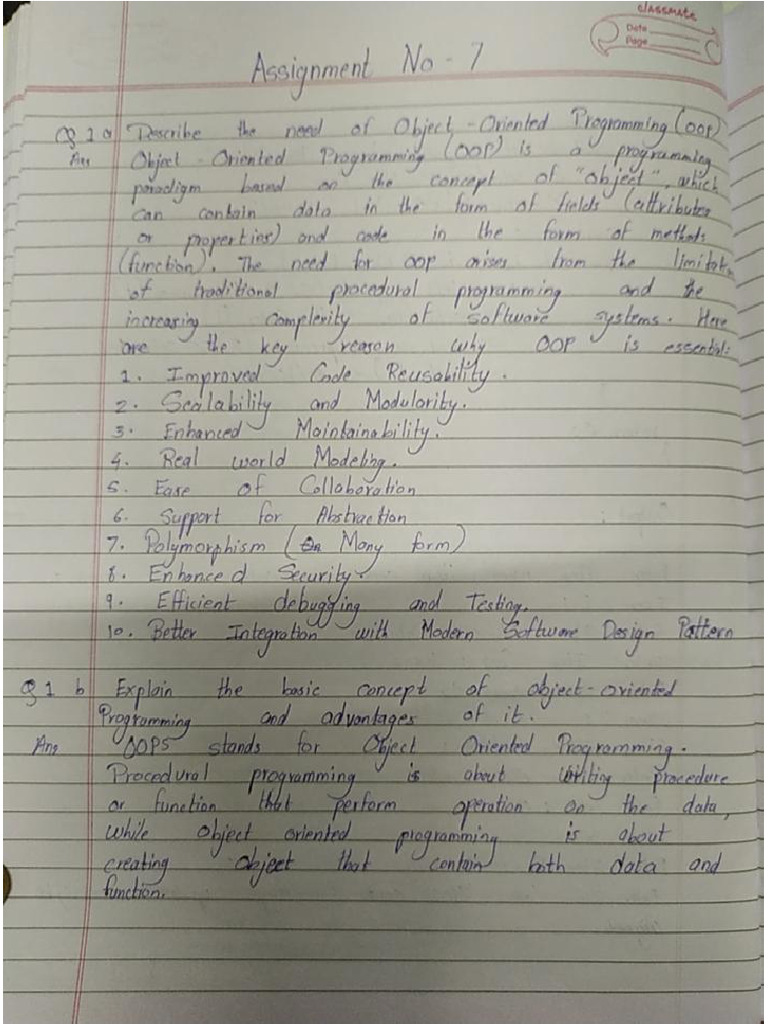 classmate
Date
Page
Assignment No - 7
Q 1 a Describe the need of Object - Oriented Programming (OOP)
Ans Object - Oriented Programming (OOP) is a programming
paradigm based on the concept of "object", which
can contain data in the form of fields (attributes
or properties) and code in the form of methods
(function). The need for OOP arises from the limitation
of traditional procedural programming and the
increasing complerity of software systems. Here
are the key reason why OOP is essential:
1. Improved Code Reusability.
2. Scalability and Modulority.
3. Enhanced Maintainability.
4. Real world Modeling.
5. Ease of Collaboration
6. Support for Abstraction
7. Polymorphism ( Many form)
8. Enhanced Security.
9. Efficient debugging and Testing.
10. Better Integration with Modern Software Design Pattern
Q 1 b Explain the basic concept of object-oriented
Programming and advantages of it.
Ans OOPS stands for Object Oriented Programming.
Procedural programming is about writing procedure
or function that perform operation on the data,
while object oriented programming is about
creating object that contain both data and
function.